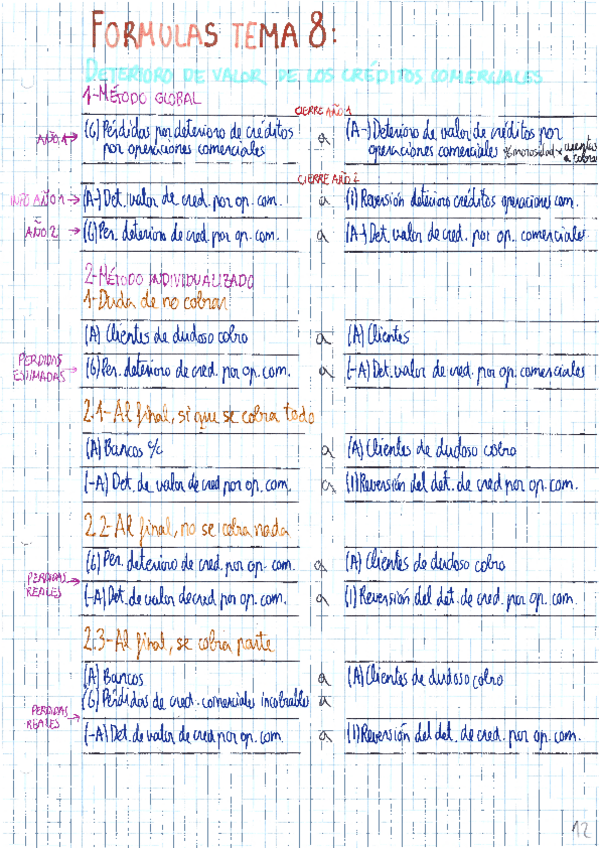 FORMULAS TEMA 8:
DETERIORO DE VALOR DE LOS CRÉDITOS COMERCIALES
1-MÉTODO GLOBAL
CIERRE AÑO 1
AÑO 1 → (G) Pérdidas por deterioro de créditos por operaciones comerciales a (A-) Deterioro de valor de créditos por operaciones comerciales %morosidad x cuentas a cobrar
CIERRE AÑO 2
INFO AÑO 1 → (A-) Det. valor de cred. por op. com. a (I) Reversión deterioro créditos operaciones com.
AÑO 2 → (G) Per. deterioro de cred. por op. com. a (A-) Det. valor de cred. por op. comerciales
2-MÉTODO INDIVIDUALIZADO
1-Duda de no cobrar
(A) Clientes de dudoso cobro a (A) Clientes
PERDIDAS ESTIMADAS → (G) Per. deterioro de cred. por op. com. a (-A) Det. valor de cred. por op. comerciales
2.1-Al final, si que se cobra todo
(A) Bancos c/c a (A) Clientes de dudoso cobro
(-A) Det. de valor de cred por op. com. a (I) Reversión del det. de cred por op. com.
2.2-Al final, no se cobra nada
(G) Per. deterioro de cred. por op. com. a (A) Clientes de dudoso cobro
PERDIDAS REALES → (-A) Det. de valor de cred. por op. com. a (I) Reversión del det. de cred. por op. com.
2.3-Al final, se cobra parte
(A) Bancos a (A) Clientes de dudoso cobro
(G) Pérdidas de cred. comerciales incobrables a
PERDIDAS REALES →
(-A) Det. de valor de cred por op. com. a (I) Reversión del det. de cred. por op. com.
12